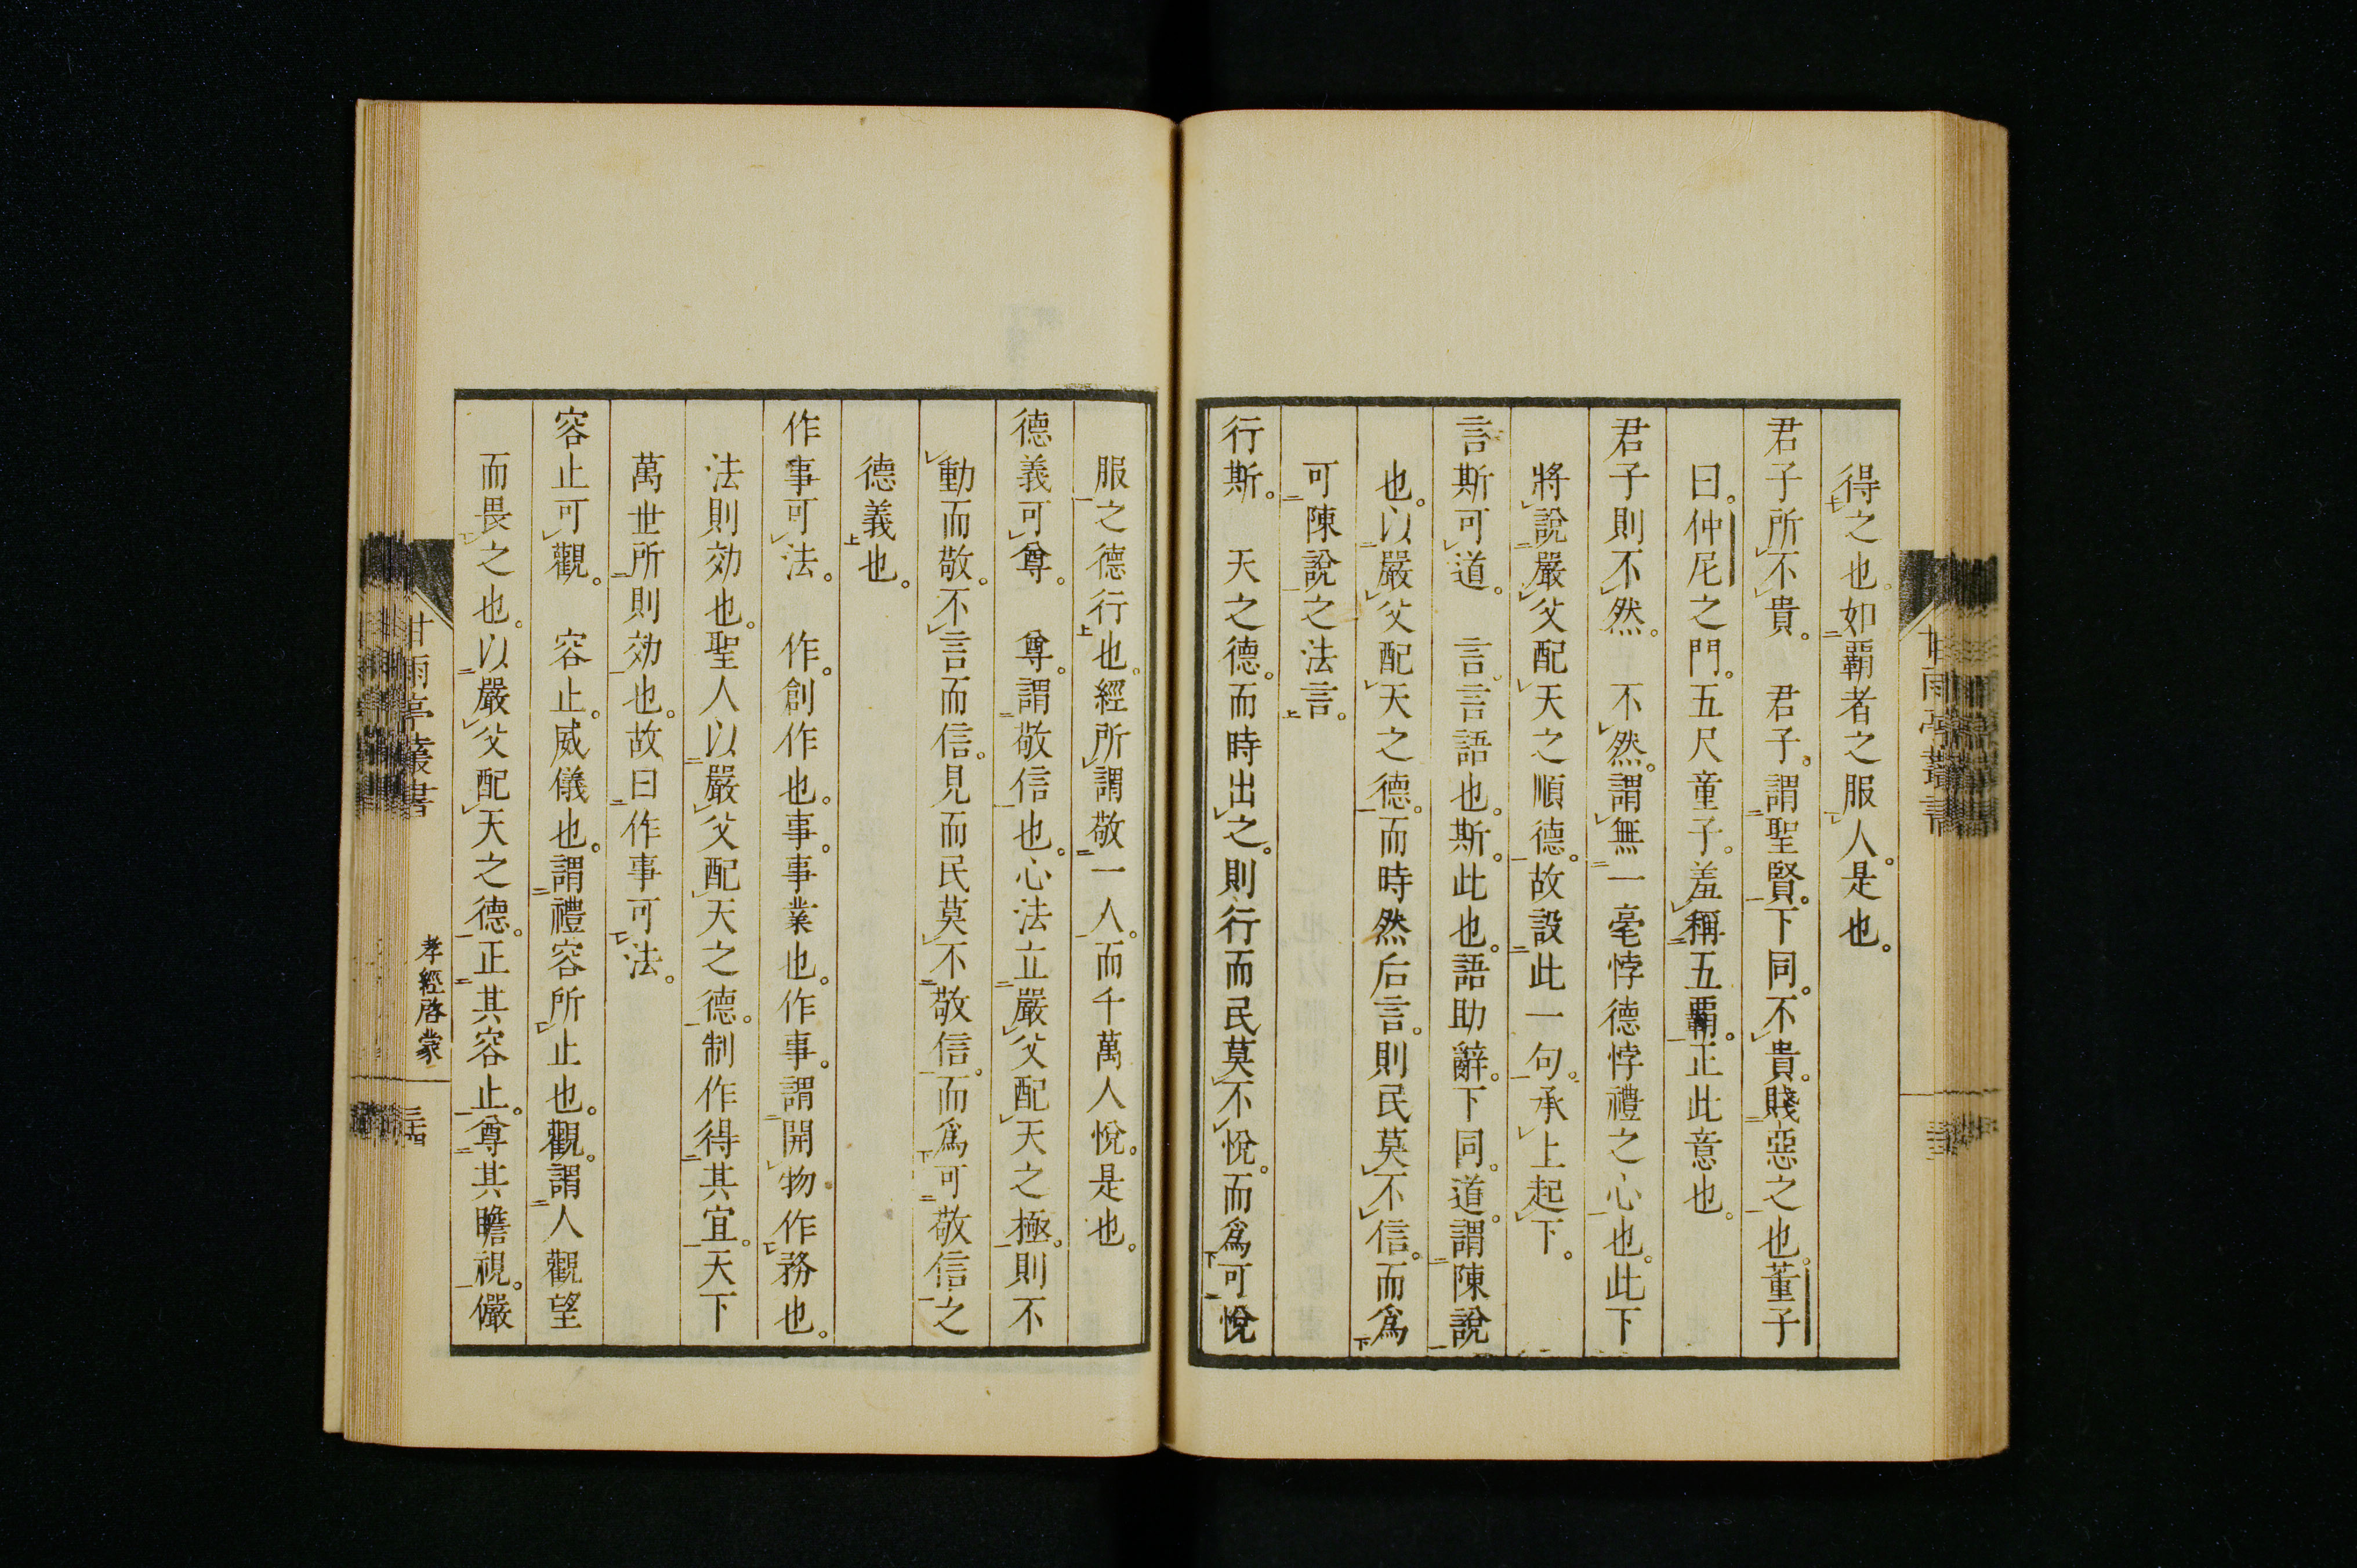 得之也。如覇者之服人。是也。
君子所不貴。　君子。謂聖賢。下同。不貴。賤惡之也。董子
曰。仲尼之門。五尺童子。羞稱五覇。正此意也。
君子則不然。　不然。謂無一毫悖德悖禮之心也。此下
將說嚴父配天之順德。故設此一句。承上起下。
言斯可道。　言。言語也。斯。此也。語助辭。下同。道。謂陳說
也。以嚴父配天之德。而時然后言。則民莫不信。而爲
可陳說之法言。
行斯。　天之德。而時出之。則行而民莫不悅。而爲可悅
服之德行也。經所謂敬一人。而千萬人悅。是也。
德義可尊。　尊。謂敬信也。心法立嚴父配天之極。則不
動而敬。不言而信。見而民莫不敬信。而爲可敬信之
德義也。
作事可法。　作。創作也。事。事業也。作事。謂開物作務也。
法則効也。聖人以嚴父配天之德。制作得其宜。天下
萬世所則効也。故曰作事可法。
容止可觀。　容止。威儀也。謂禮容所止也。觀。謂人觀望
而畏之也。以嚴父配天之德。正其容止。尊其瞻視。儼
甘雨亭叢書
孝經啓蒙
三十四
甘雨亭叢書